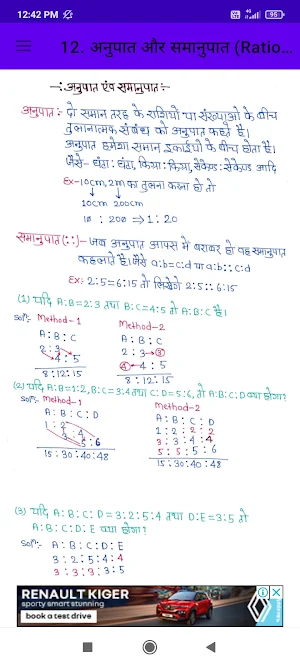 12:42 PM
95
12. अनुपात और समानुपात (Ratio...
-: अनुपात एंव समानुपात :-
अनुपात :- दो समान तरह के राशियों या संख्याओं के बीच
तुलनात्मक संबंध को अनुपात कहते हैं।
अनुपात हमेशा समान इकाईयों के बीच होता हैं।
जैसे- घंटा : घंटा, किग्रा : किग्रा, सेकेण्ड : सेकेण्ड आदि
Ex:- 10cm, 2m का तुलना करना हो तो
10cm 200cm
10 : 200 ⇒ 1 : 20
समानुपात (::) - जब अनुपात आपस में बराबर हो वह समानुपात
कहलाते हैं। जैसे a:b=c:d या a:b::c:d
Ex:- 2:5=6:15 तो लिखेगें 2:5::6:15
(1) यदि A:B=2:3 तथा B:C=4:5 तो A:B:C है।
Solⁿ:- Method-1 Method-2
A : B : C A : B : C
2 : 3 2 : 3 → 3
4 : 5 4 ← 4 : 5
8 : 12 : 15 8 : 12 : 15
(2) यदि A:B=1:2, B:C=3:4 तथा C:D=5:6, तो A:B:C:D क्या होगा?
Solⁿ:- Method-1 Method-2
A : B : C : D A : B : C : D
1 : 2 1 : 2 : 2 : 2
3 : 4 3 : 3 : 4 : 4
5 : 6 5 : 5 : 5 : 6
15 : 30 : 40 : 48 15 : 30 : 40 : 48
(3) यदि A:B:C:D=3:2:5:4 तथा D:E=3:5 तो
A:B:C:D:E क्या होगा?
Solⁿ:- A : B : C : D : E
3 : 2 : 5 : 4 : 4
3 : 3 : 3 : 3 : 5
RENAULT KIGER
sporty smart stunning
book a test drive